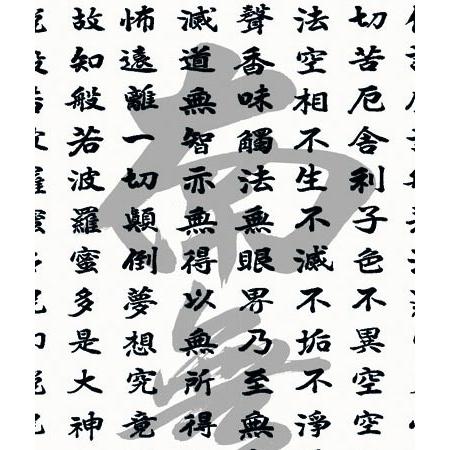 切苦厄舍利子色不異空空
法空相不生不滅不垢不淨
聲香味觸法無眼界乃至無
滅道無智亦無得以無所得
怖遠離一切顛倒夢想究竟
故知般若波羅蜜多是大神
南無